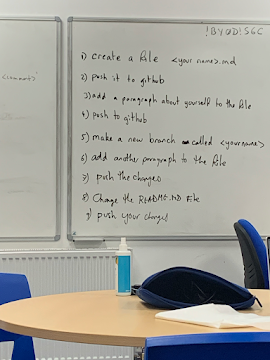 1) create a file <your name>.md
2) push it to github
3) add a paragraph about yourself to the file
4) push to github
5) make a new branch called <yourname>
6) add another paragraph to the file
7) push the changes
8) Change the README.MD File
9) push your changes
<comment>